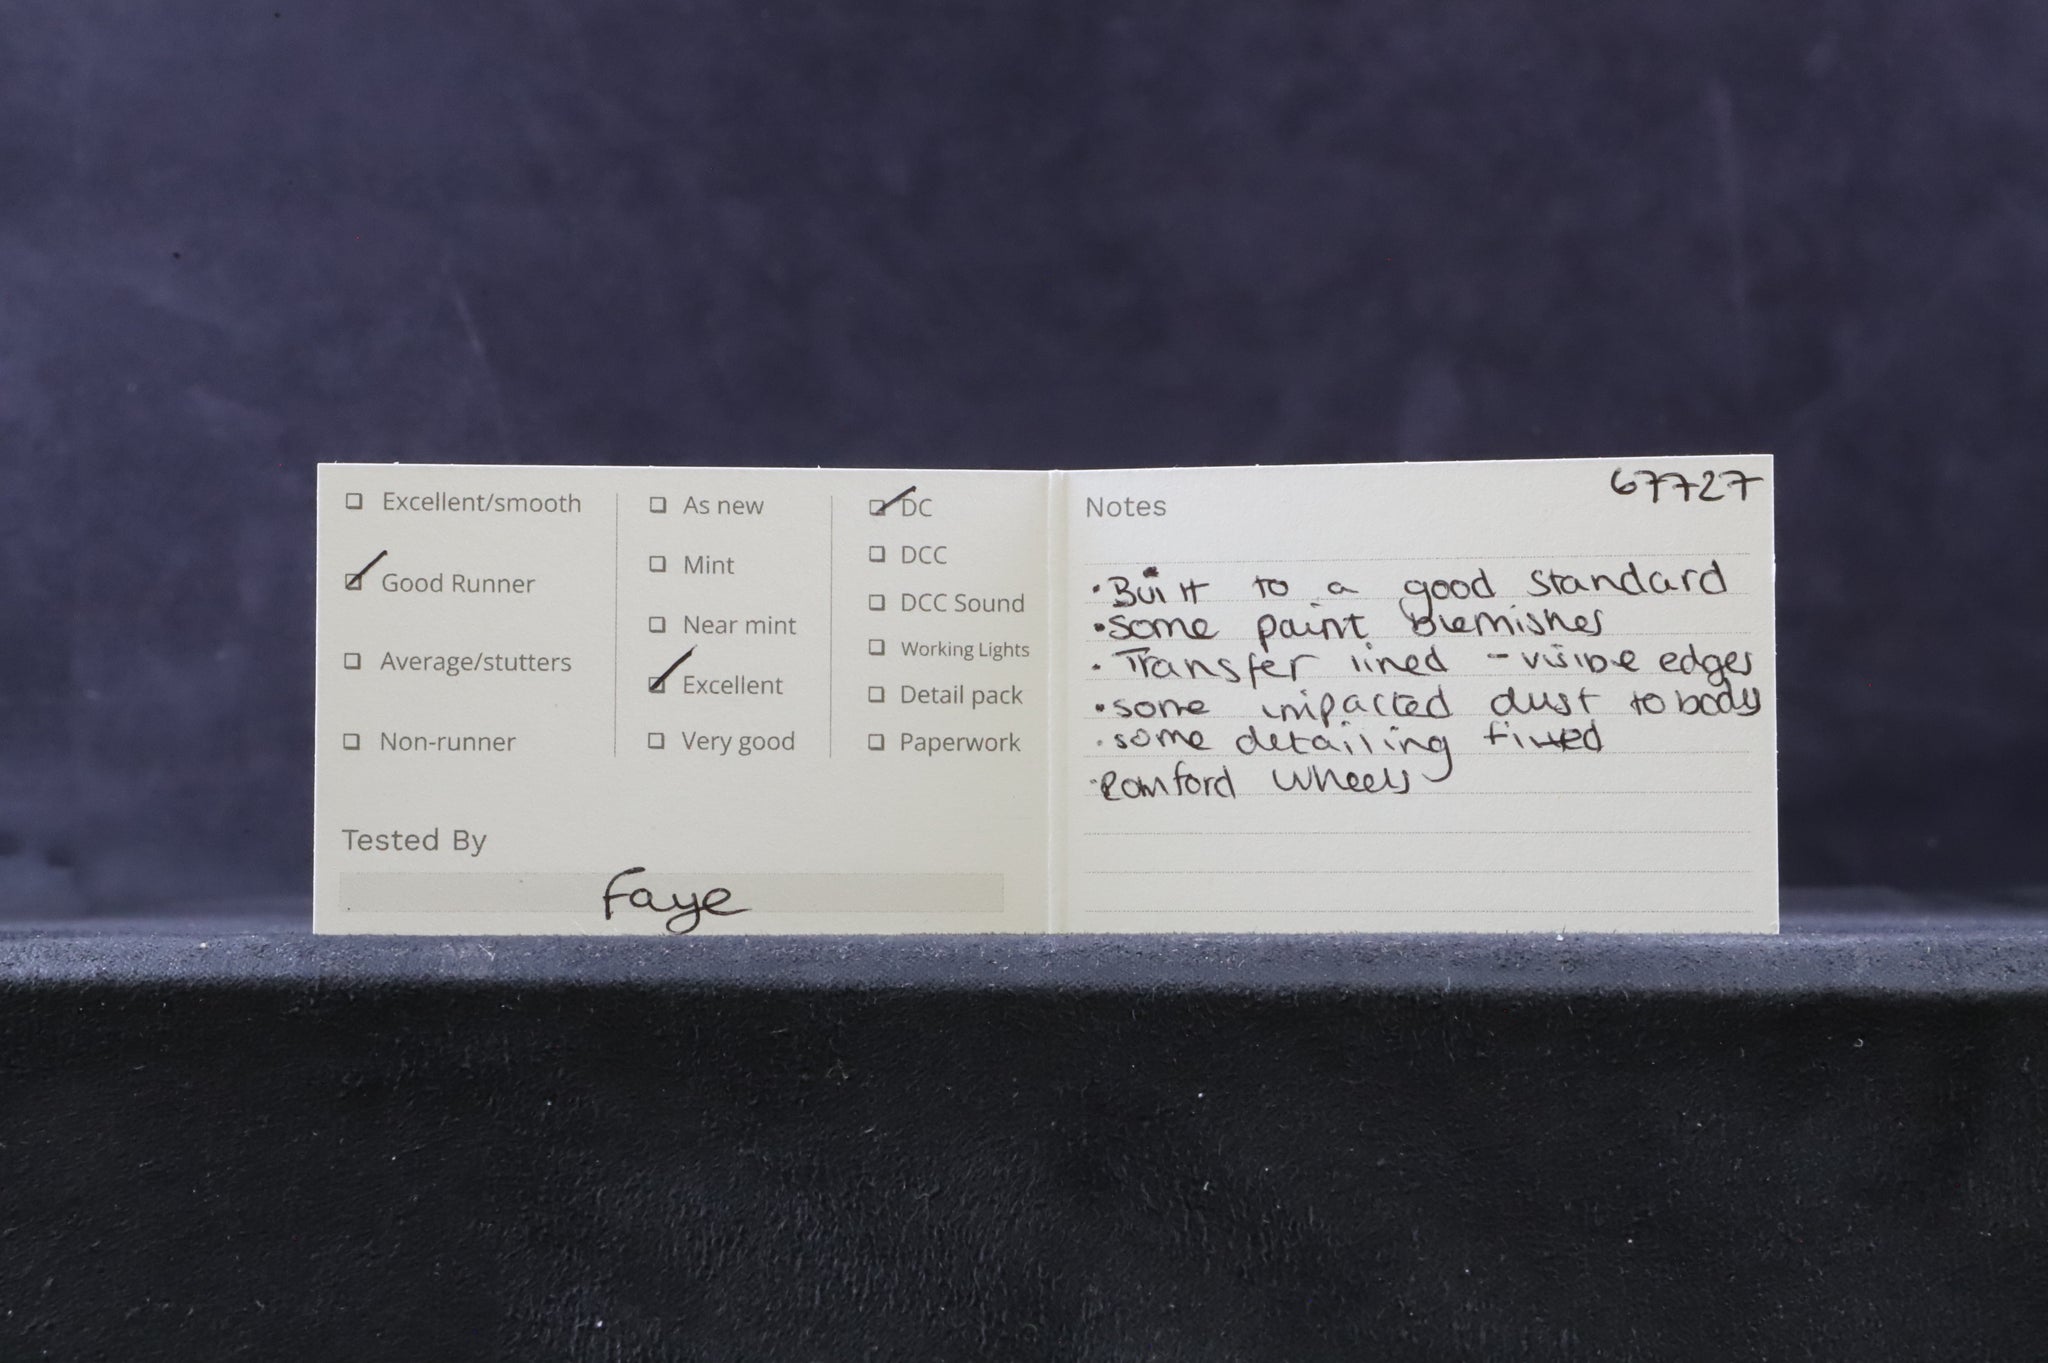 Excellent/smooth
Good Runner
Average/stutters
Non-runner
As new
Mint
Near mint
Excellent
Very good
DC
DCC
DCC Sound
Working Lights
Detail pack
Paperwork
Tested By
Faye
67727
Notes
• Built to a good standard
• some paint blemishes
• Transfer lined - visible edges
• some impacted dust to body
• some detailing fitted
• Romford wheels